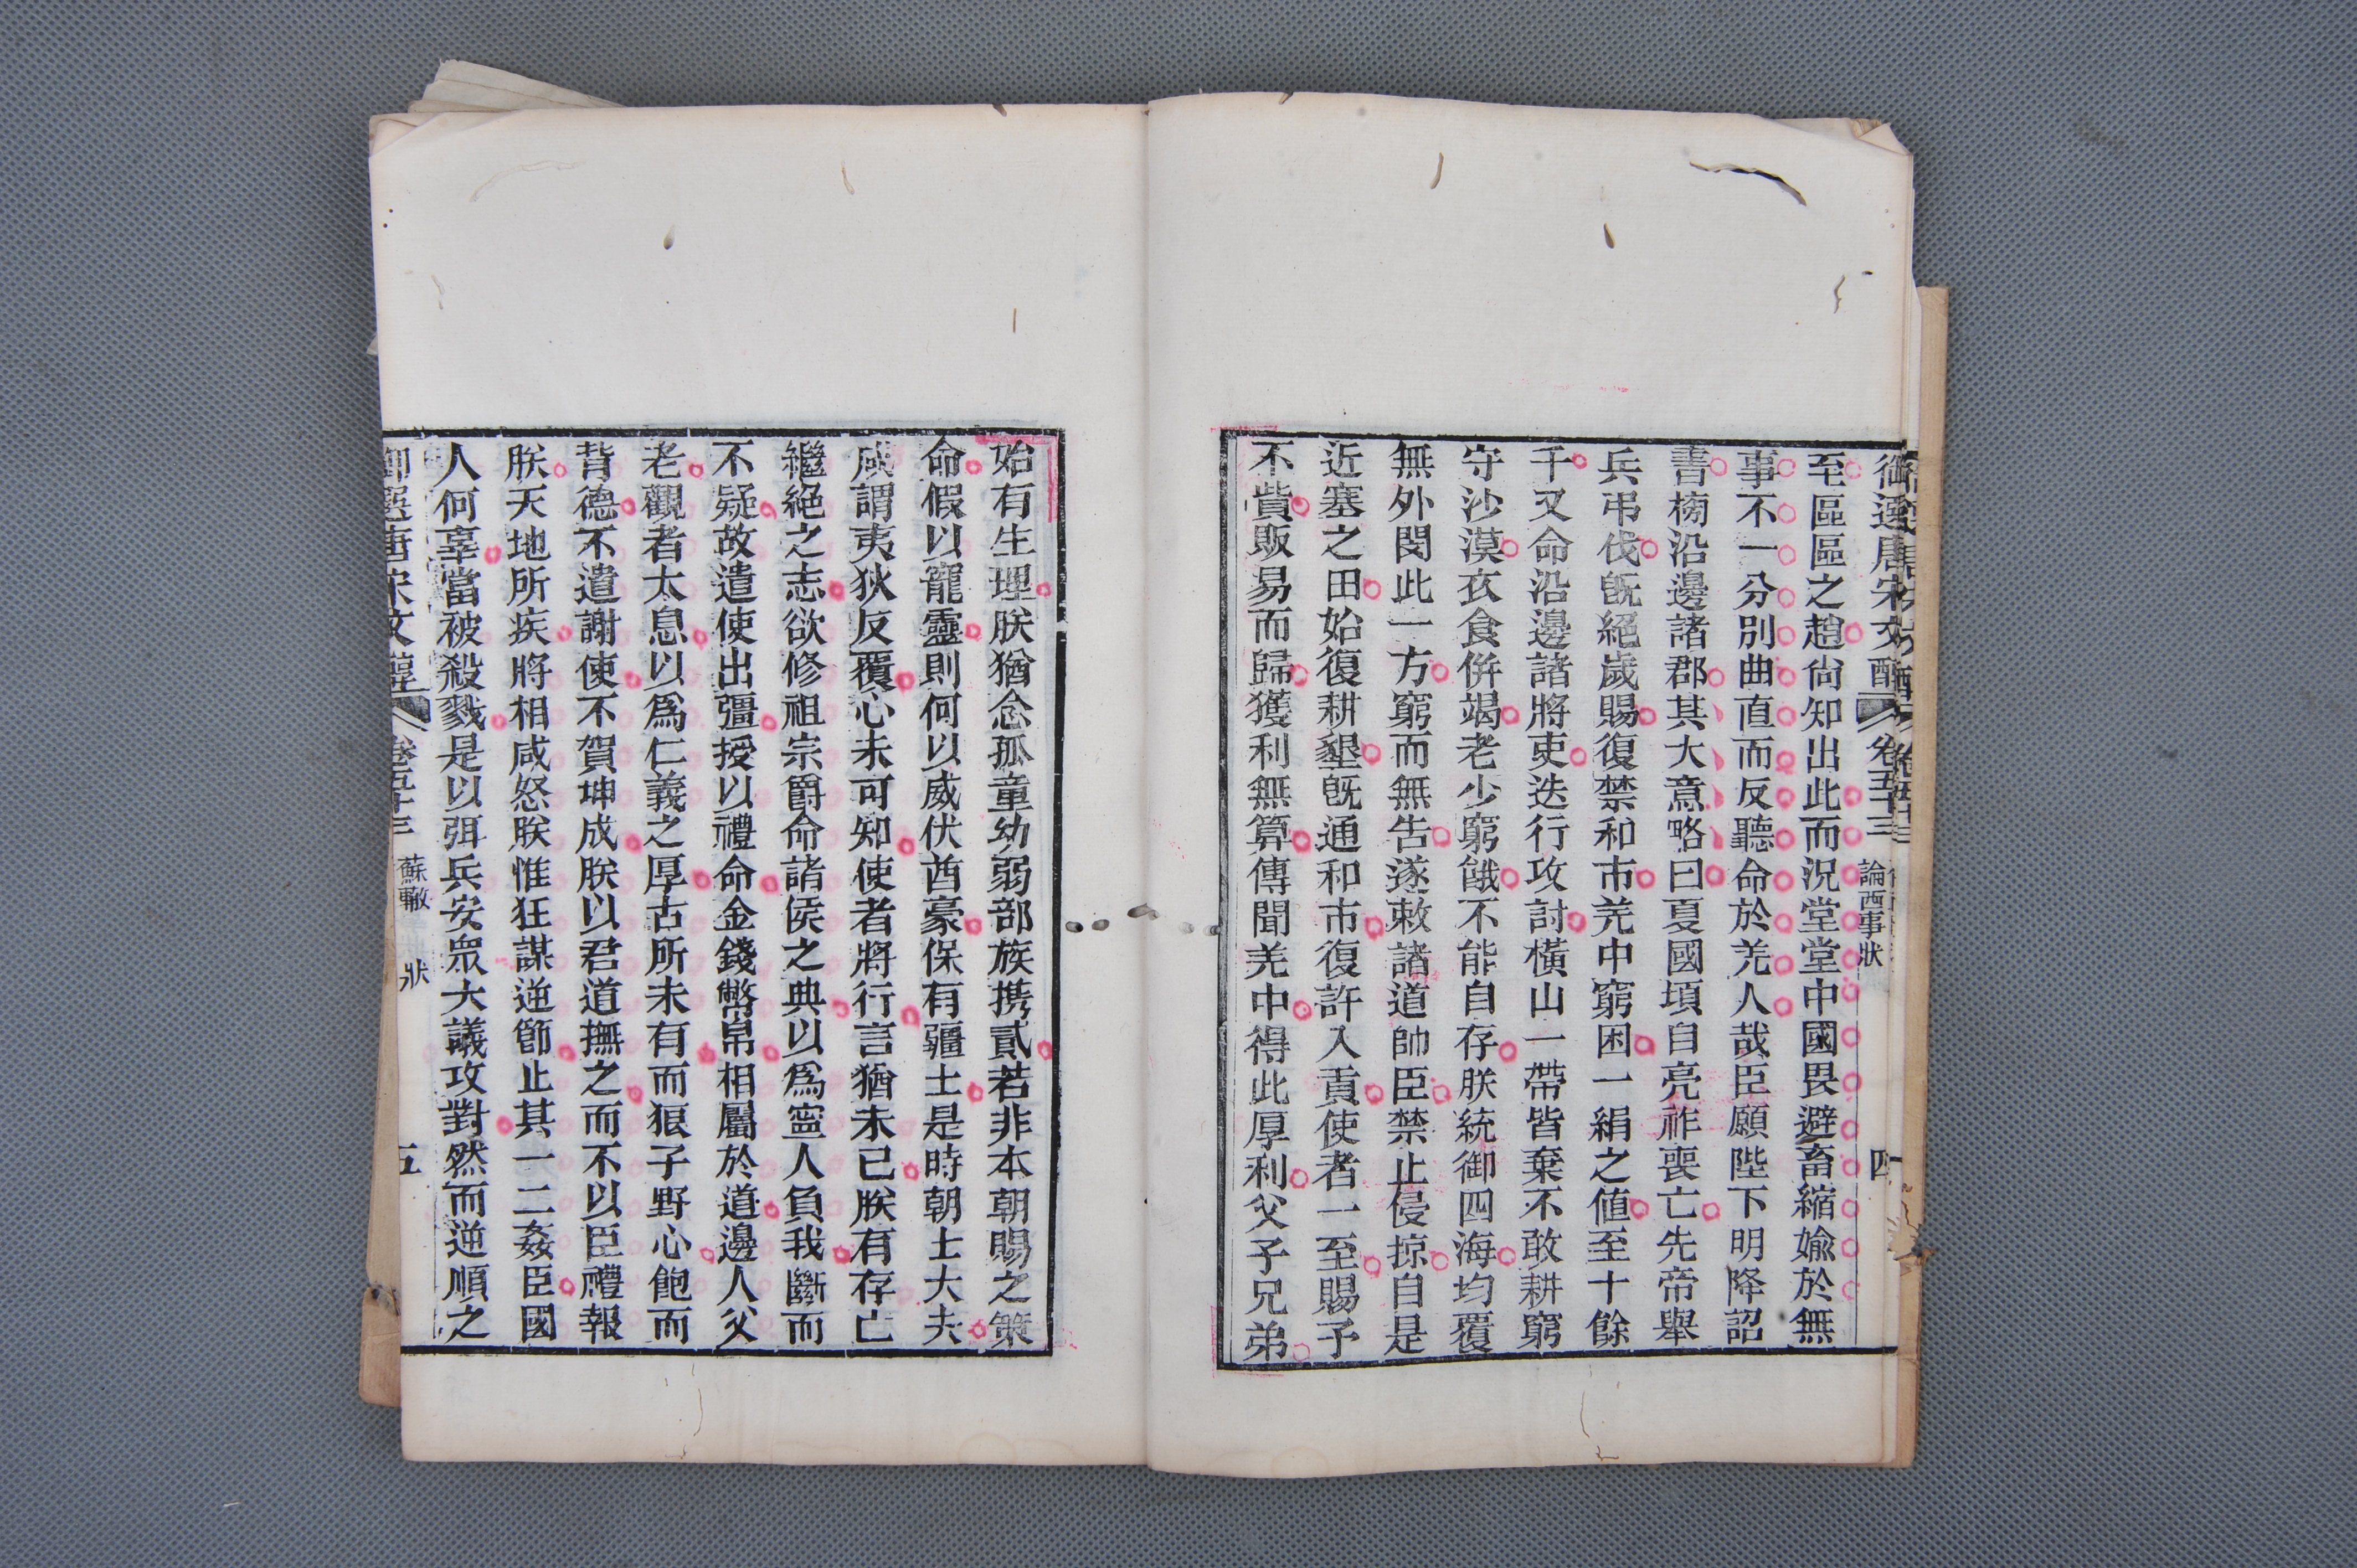 御選唐宋文醇 卷五十三 論西事狀 四
至區區之趙尙知出此而況堂堂中國畏避畜縮媮於無
事不一分別曲直而反聽命於羌人哉臣願陛下明降詔
書榜沿邊諸郡其大意略曰夏國頃自亮祚喪亡先帝舉
兵弔伐旣絕歲賜復禁和市羌中窮困一絹之値至十餘
千又命沿邊諸將吏迭行攻討橫山一帶皆棄不敢耕窮
守沙漠衣食併竭老少窮餓不能自存朕統御四海均覆
無外閔此一方窮而無告遂敕諸道帥臣禁止侵掠自是
近塞之田始復耕墾旣通和市復許入貢使者一至賜予
不貲販易而歸獲利無算傳聞羌中得此厚利父子兄弟
始有生理朕猶念孤童幼弱部族携貳若非本朝賜之策
命假以寵靈則何以威伏酋豪保有疆土是時朝士大夫
咸謂夷狄反覆心未可知使者將行言猶未已朕有存亡
繼絕之志欲修祖宗爵命諸侯之典以爲寧人負我斷而
不疑故遣使出疆授以禮命金錢幣帛相屬於道邊人父
老觀者太息以爲仁義之厚古所未有而狼子野心飽而
背德不遣謝使不賀坤成朕以君道撫之而不以臣禮報
朕天地所疾將相咸怒朕惟狂謀逆節止其一二姦臣國
人何辜當被殺戮是以弭兵安衆大議攻討然而逆順之
御選唐宋文醇 卷五十三 蘇轍 狀 五